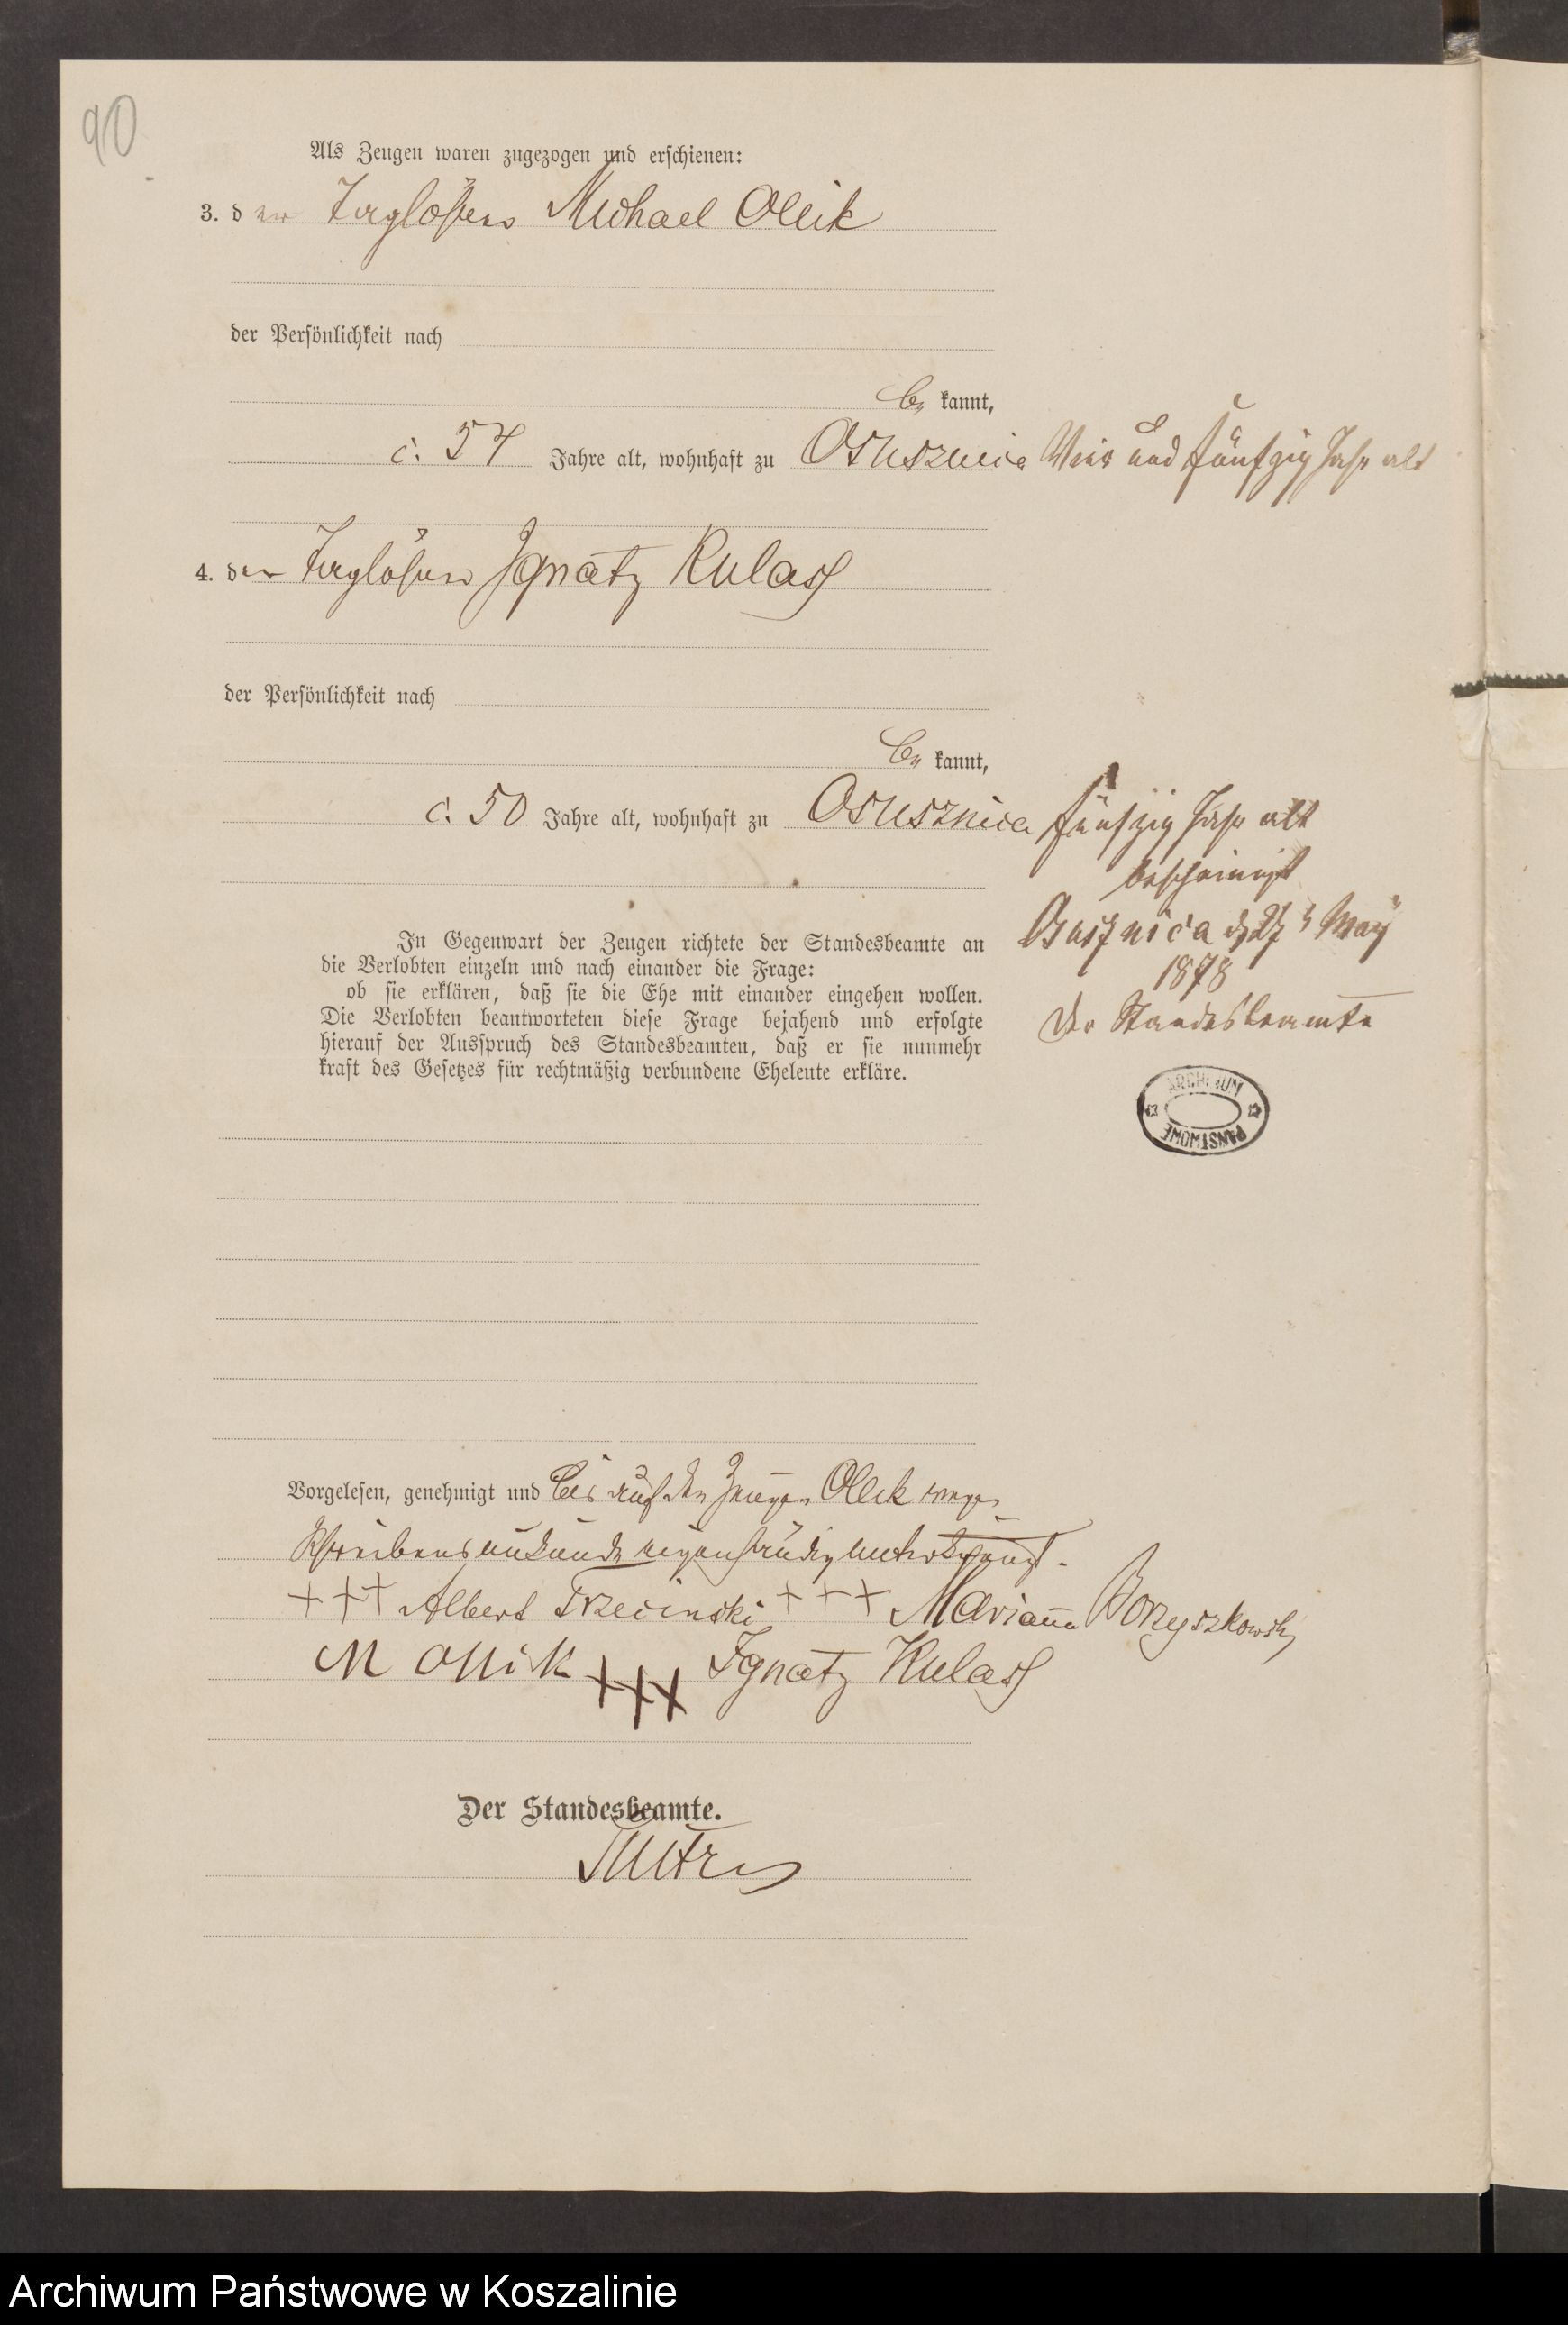 90
Als Zeugen waren zugezogen und erschienen:
3. der Taglöhner Michael Ollik
der Persönlichkeit nach
be kannt,
c. 54 Jahre alt, wohnhaft zu Osusznica Vier und fünfzig Jahr alt
4. der Taglöhner Ignatz Kulas
der Persönlichkeit nach
be kannt,
c. 50 Jahre alt, wohnhaft zu Osusznica fünfzig Jahr alt
bescheinigt
In Gegenwart der Zeugen richtete der Standesbeamte an
die Verlobten einzeln und nach einander die Frage:
ob sie erklären, daß sie die Ehe mit einander eingehen wollen.
Die Verlobten beantworteten diese Frage bejahend und erfolgte
hierauf der Ausspruch des Standesbeamten, daß er sie nunmehr
kraft des Gesetzes für rechtmäßig verbundene Eheleute erkläre.
Osusznica d 27 May
1878
Der Standesbeamte
ARCHIWUM
PAŃSTWOWE
Vorgelesen, genehmigt und bis auf den Zeugen Ollik wegen
Schreibensunkunde eigenhändig unterkreuzt.
+++ Albert Trzecinski +++ Marianna Borzyszkowsky
M Ollik +++ Ignatz Kulas
Der Standesbeamte.
Archiwum Państwowe w Koszalinie